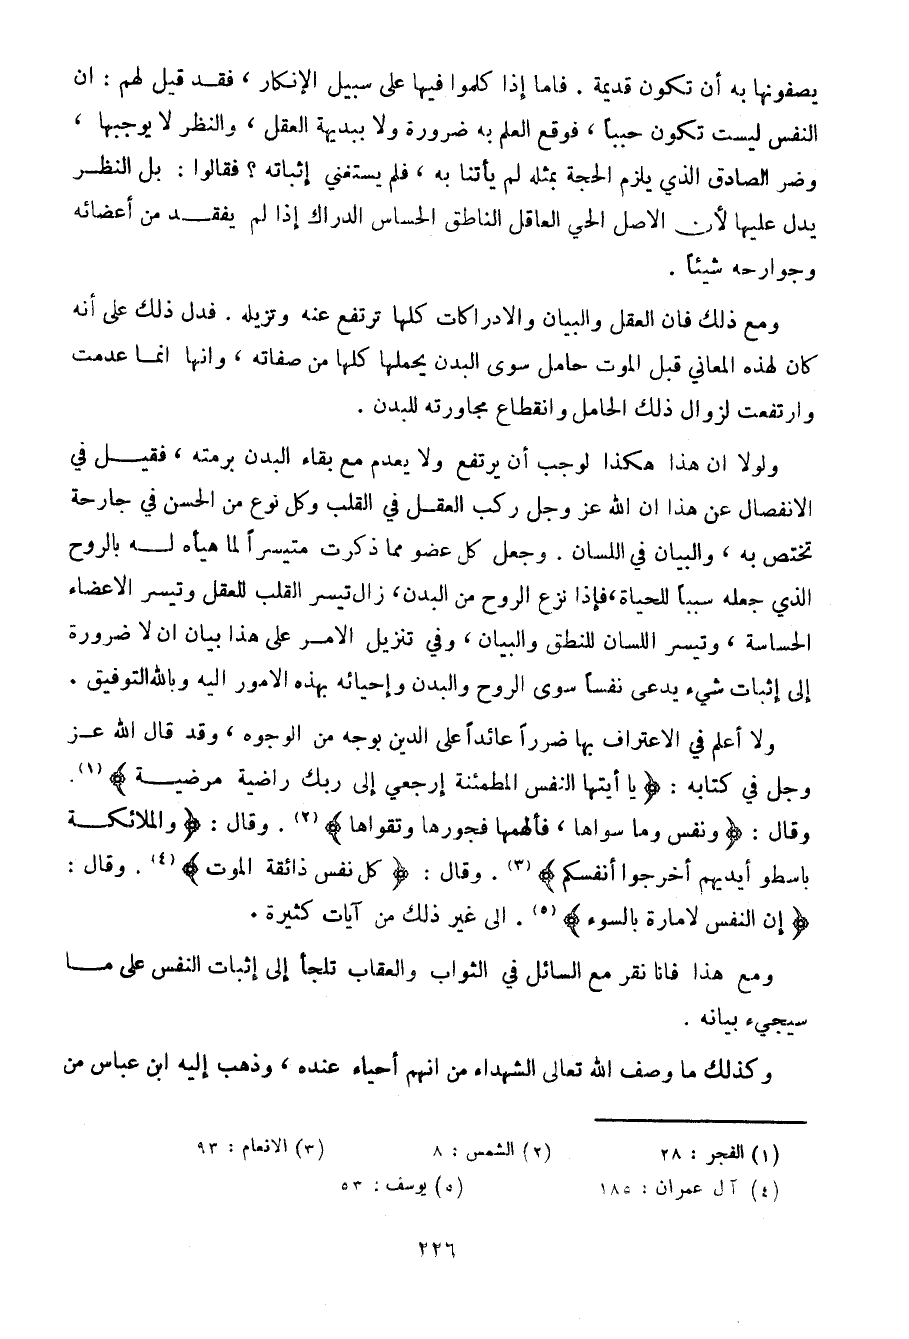 يصفونها به أن تكون قديمة . فاما إذا كلموا فيها على سبيل الإنكار ، فقد قيل لهم : ان
النفس ليست تكون حبباً ، فوقع العلم به ضرورة ولا ببديهة العقل ، والنظر لا يوجبها ،
وضر الصادق الذي يلزم الحجة بمثله لم يأتنا به ، فلم يستغني إثباته ؟ فقالوا : بل النظر
يدل عليها لأن الاصل الحي العاقل الناطق الحساس الدراك إذا لم يفقد من أعضائه
وجوارحه شيئاً .
ومع ذلك فان العقل والبيان والادراكات كلها ترتفع عنه وتزيله . فدل ذلك على أنه
كان لهذه المعاني قبل الموت حامل سوى البدن يحملها كلها من صفاته ، وانها انما عدمت
وارتفعت لزوال ذلك الحامل وانقطاع مجاورته للبدن .
ولولا ان هذا هكذا لوجب أن يرتفع ولا يعدم مع بقاء البدن برمته ، فقيل في
الانفصال عن هذا ان الله عز وجل ركب العقل في القلب وكل نوع من الحسن في جارحة
تختص به ، والبيان في اللسان . وجعل كل عضو مما ذكرت متيسراً لما هيأه له بالروح
الذي جعله سبباً للحياة،فإذا نزع الروح من البدن، زال تيسر القلب للعقل وتيسر الاعضاء
الحساسة ، وتيسر اللسان للنطق والبيان ، وفي تنزيل الامر على هذا بيان ان لا ضرورة
إلى إثبات شيء يدعى نفساً سوى الروح والبدن وإحيائه بهذه الامور اليه وبالله التوفيق .
ولا أعلم في الاعتراف بها ضرراً عائداً على الدين بوجه من الوجوه ، وقد قال الله عز
وجل في كتابه : ﴿ يا أيتها النفس المطمئنة إرجعي إلى ربك راضية مرضية ﴾ (١).
وقال : ﴿ ونفس وما سواها ، فألهمها فجورها وتقواها ﴾ (٢) . وقال : ﴿ والملائكة
باسطو أيديهم أخرجوا أنفسكم ﴾ (٣) . وقال : ﴿ كل نفس ذائقة الموت ﴾ (٤) . وقال :
﴿ إن النفس لامارة بالسوء ﴾ (٥) . الى غير ذلك من آيات كثيرة .
ومع هذا فانا نقر مع السائل في الثواب والعقاب تلجأ إلى إثبات النفس على ما
سيجيء بيانه .
وكذلك ما وصف الله تعالى الشهداء من انهم أحياء عنده ، وذهب إليه ابن عباس من
(١) الفجر : ٢٨ (٢) الشمس : ٨ (٣) الانعام : ٩٣
(٤) آل عمران : ١٨٥ (٥) يوسف : ٥٣
٢٢٦